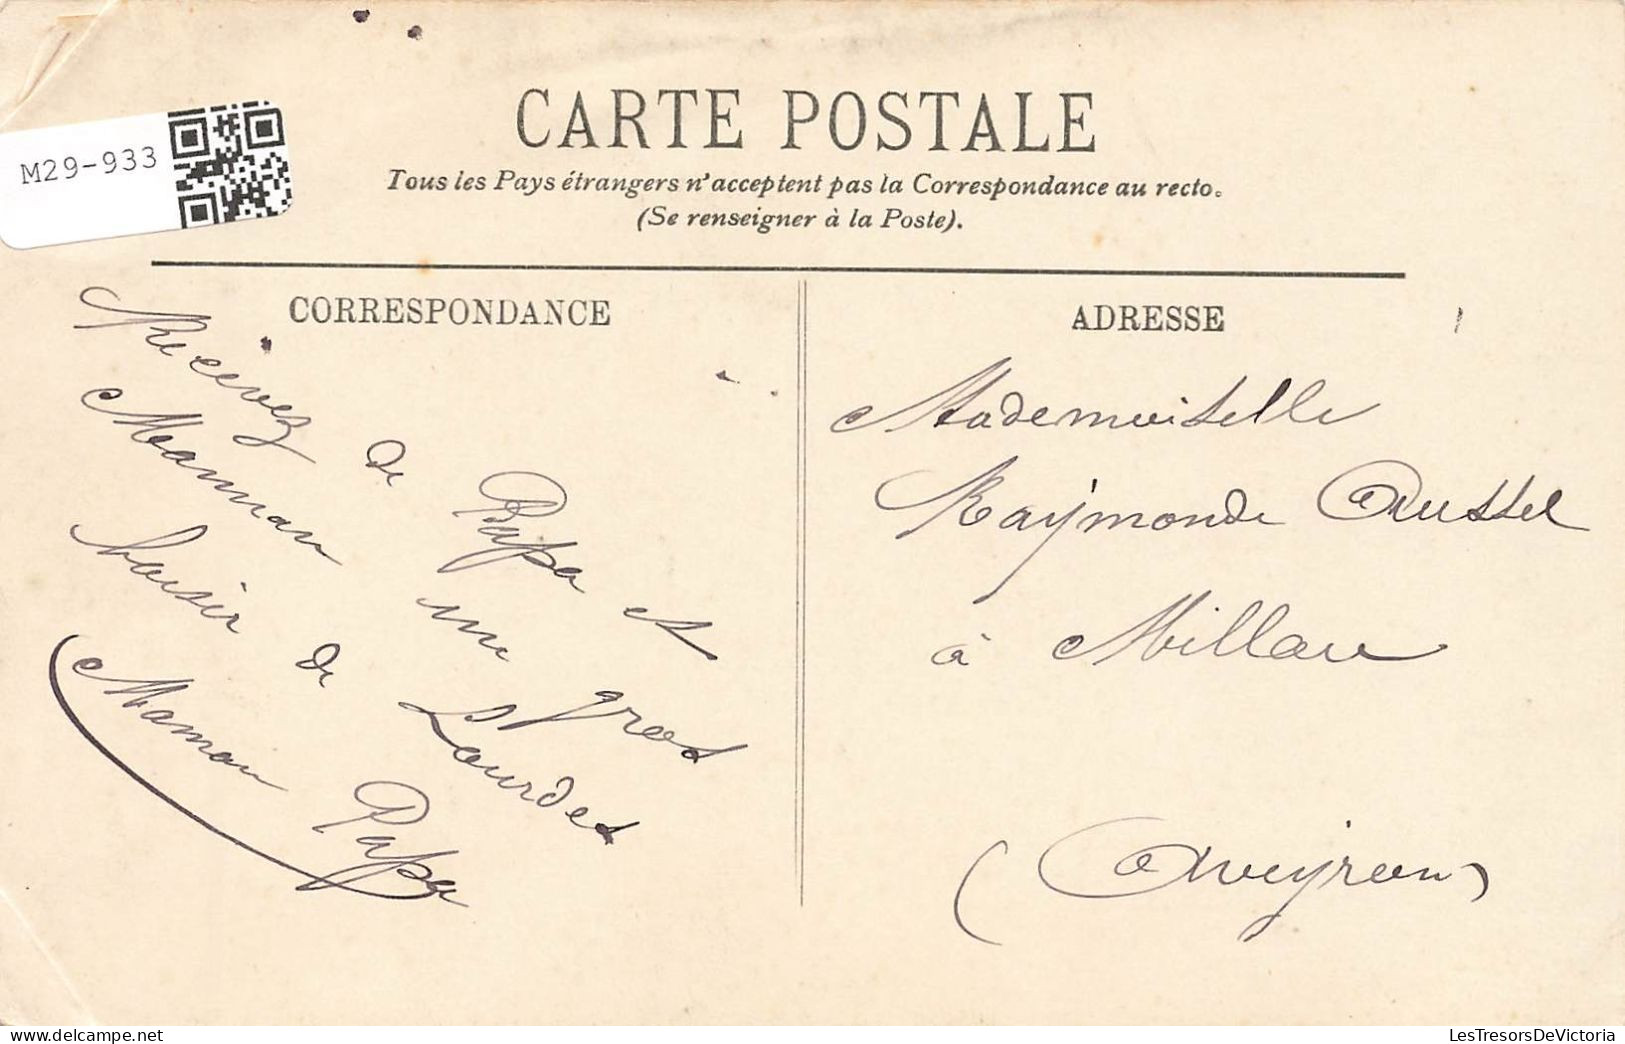 M29-933
CARTE POSTALE
Tous les Pays étrangers n'acceptent pas la Correspondance au recto.
(Se renseigner à la Poste).
CORRESPONDANCE
Recevez de Papa et
Maman un gros
baisir de Lourdes
Maman Papa
ADRESSE
Mademoiselle
Raymonde
à Millau
(Aveyron)
www.delcampe.net
LesTresorsDeVictoria